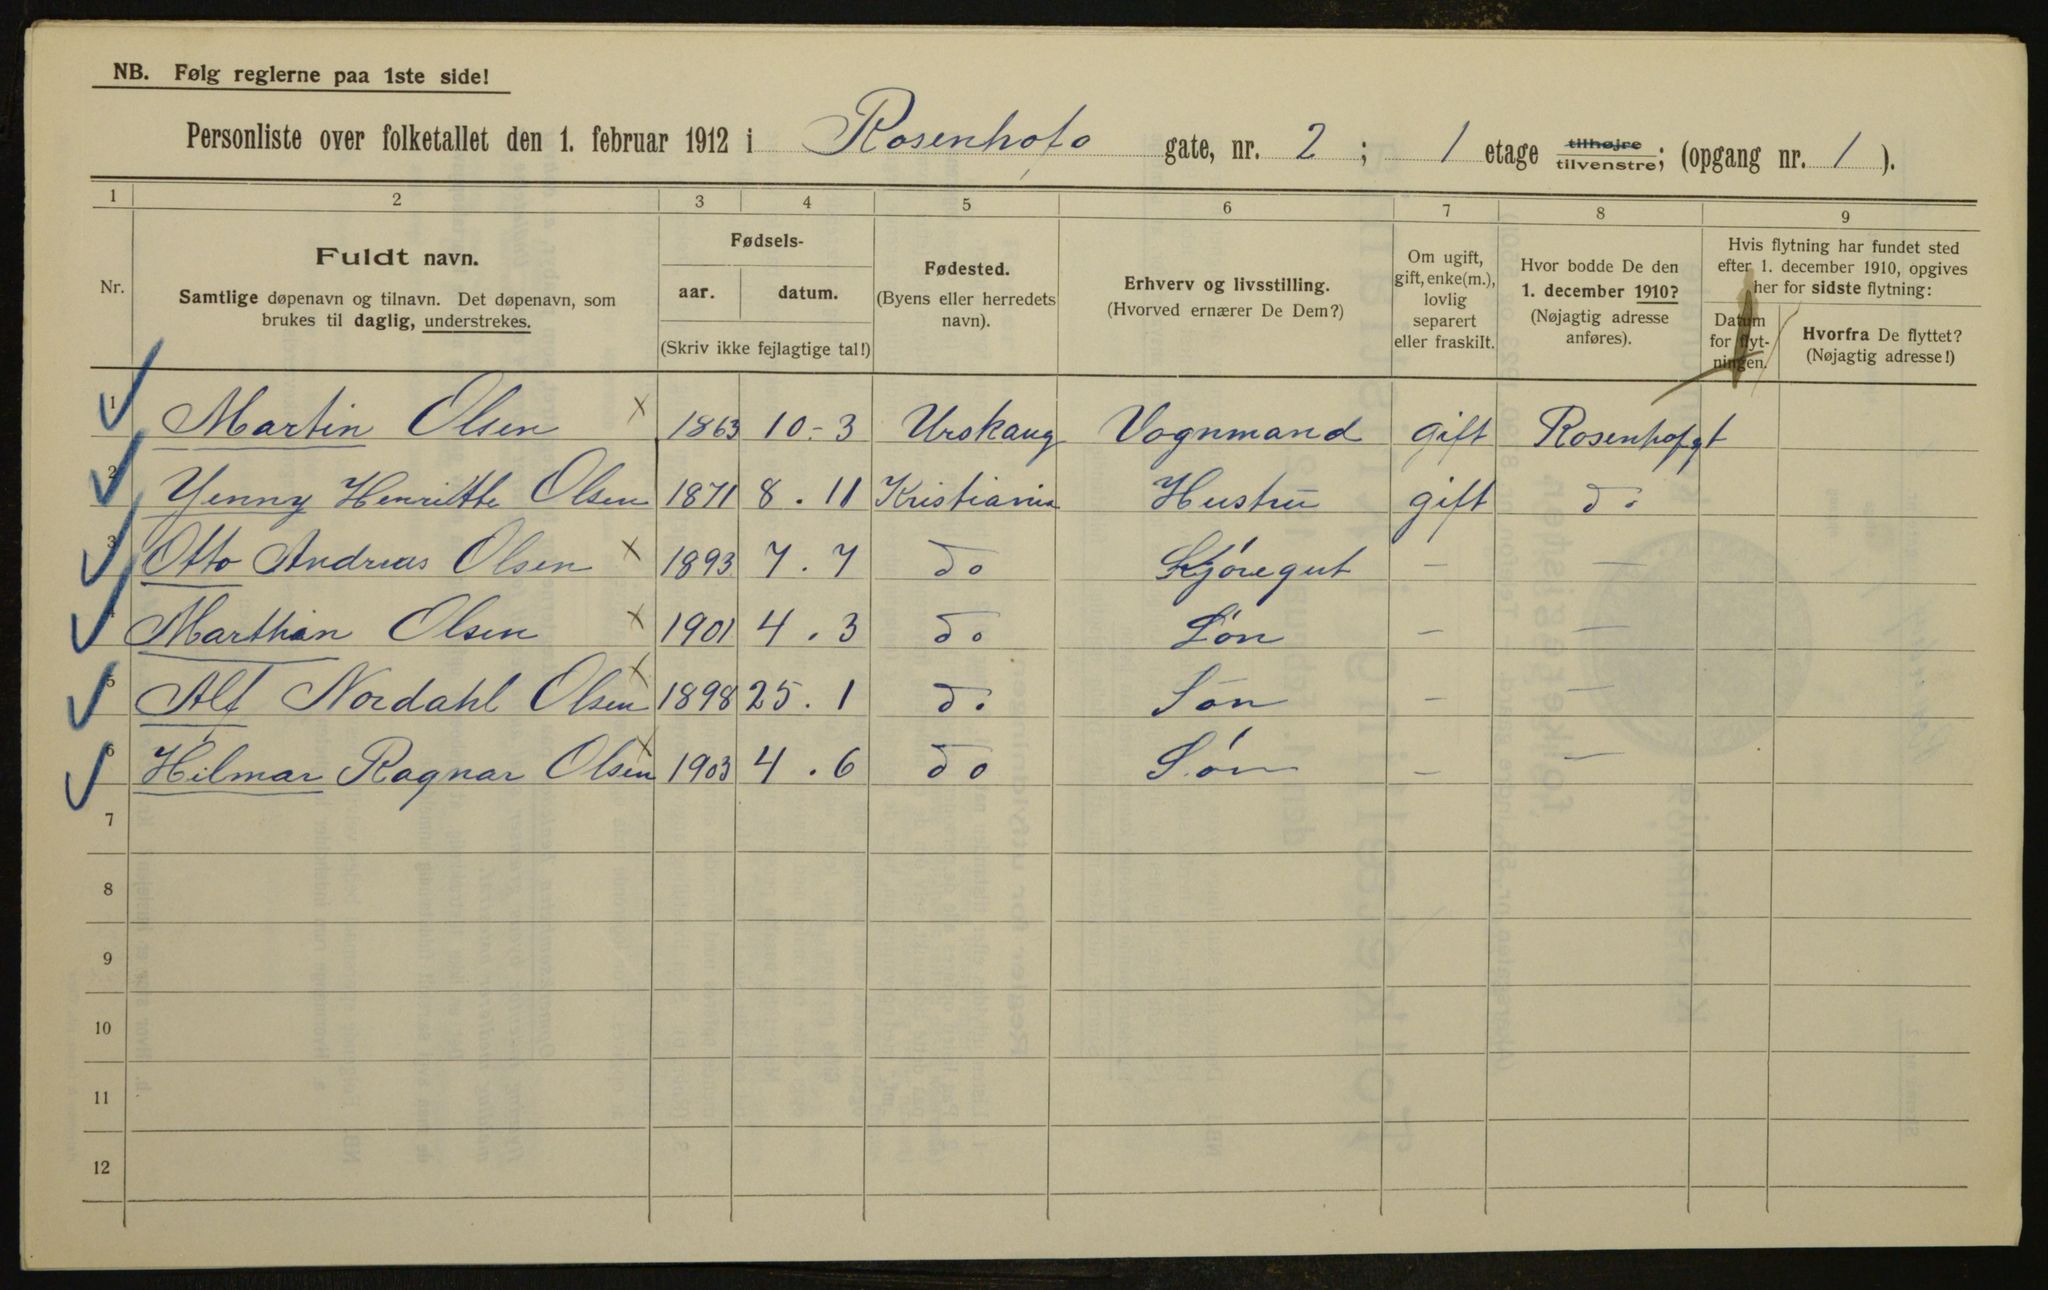 NB. Følg reglerne paa 1ste side!
Personliste over folketallet den 1. februar 1912 i Rosenhofs gate, nr. 2 ; 1 etage tilhøjre tilvenstre; (opgang nr. 1 ).
1 2 3 4 5 6 7 8 9
Nr.
Fuldt navn.
Samtlige døpenavn og tilnavn. Det døpenavn, som
brukes til daglig, understrekes.
Fødsels-
aar. datum.
(Skriv ikke fejlagtige tal!)
Fødested.
(Byens eller herredets
navn).
Erhverv og livsstilling.
(Hvorved ernærer De Dem?)
Om ugift,
gift, enke(m.),
lovlig
separert
eller fraskilt.
Hvor bodde De den
1. december 1910?
(Nøjagtig adresse
anføres).
Hvis flytning har fundet sted
efter 1. december 1910, opgives
her for sidste flytning:
Datum
for flyt-
ningen.
Hvorfra De flyttet?
(Nøjagtig adresse!)
1 Martin Olsen x 1863 10-3 Urskaug Vognmand gift Rosenhofgt
2 Yenny Henriette Olsen 1871 8.11 Kristiania Hustru gift do
3 Otto Andreas Olsen x 1893 7.7 do Kjøregut - -
4 Marthin Olsen x 1901 4.3 do Søn - -
5 Alf Nordahl Olsen x 1898 25.1 do Søn - -
6 Hilmar Ragnar Olsen x 1903 4.6 do Søn - -
7
8
9
10
11
12